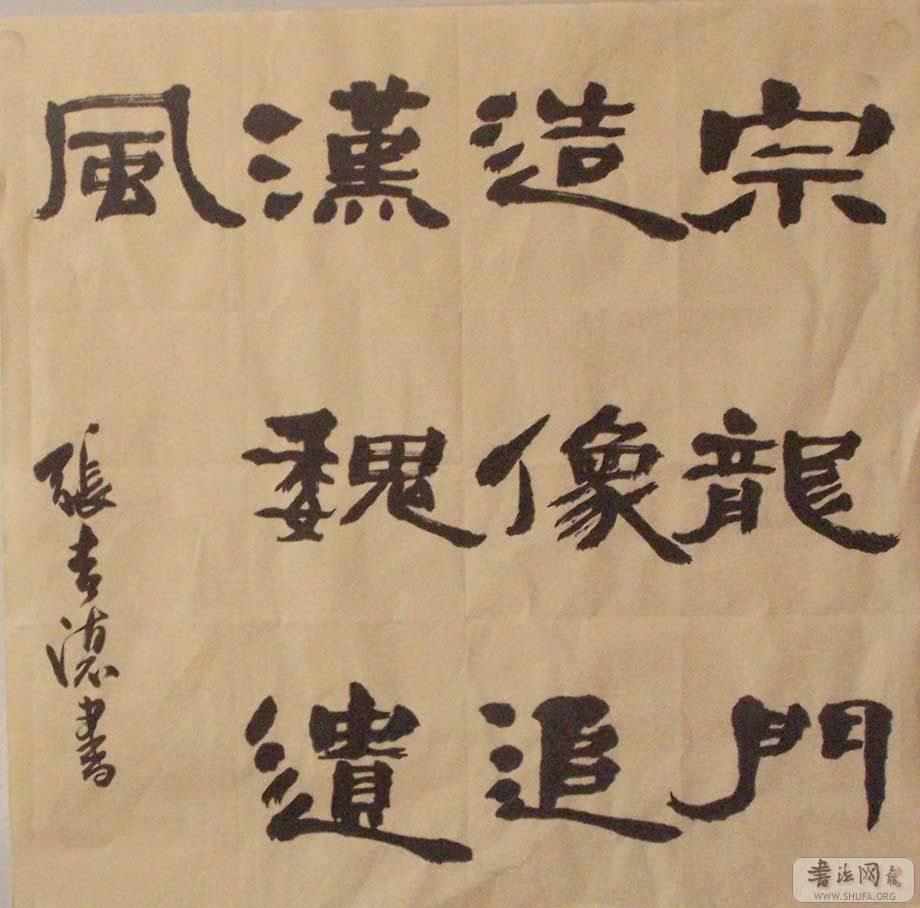 宗龍門
造像追
漢魏遺
風
張吉德書
書法网
WWW.SHUFA.ORG